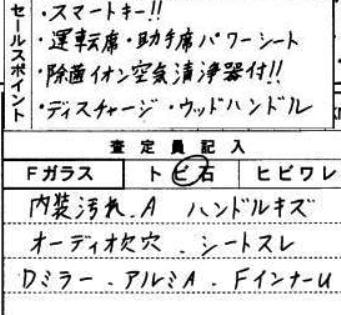 セールスポイント
・スマートキー!!
・運転席・助手席パワーシート
・除菌イオン空気清浄器付!!
・ディスチャージ・ウッドハンドル
査定員記入
Fガラス トビ石 ヒビワレ
内装汚れ.A ハンドルキズ
オーディオ欠穴、シートスレ
Dミラー、アルミA、FインナーU